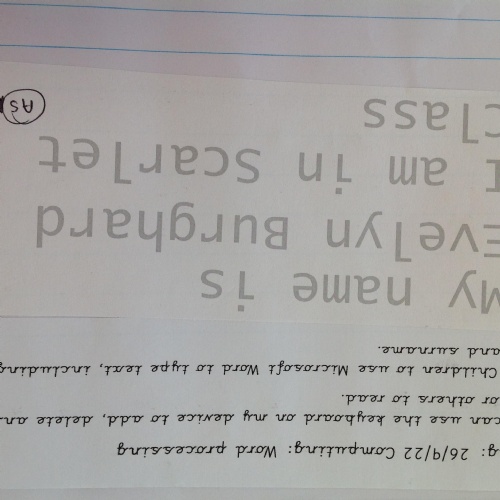 g: 26/9/22 Computing: Word processing
can use the keyboard on my device to add, delete an
or others to read.
Children to use Microsoft Word to type text, including
and surname.
My name is
Evelyn Burghard
I am in Scarlet
Class
AS